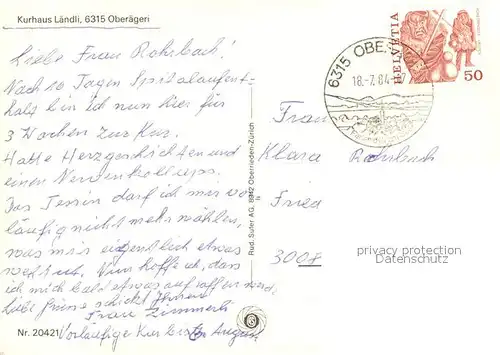 Kurhaus Ländli, 6315 Oberägeri
Liebe Frau Rohrbach!
Nach 10 Tagen Spitalaufent-
halt bin ich nun hier für
3 Wochen zur Kur.
Hatte Herzgeschichten und
einen Nervenkollaps.
Das Tessin darf ich mir vor
läufig nicht mehr wählen,
was mir eigentlich etwas
weh tut. Nun hoffe ich, dass
ich mich bald etwas auffassen werd.
Liebe Grüsse schickt Ihnen
Frau Zimmerli
Vorläufige Kur bis August
Nr. 20421
Rud. Suter AG, 8942 Oberrieden-Zürich
6315 OBES
18.-7. 84-17
HELVETIA
50
Frau
Klara Rohrbach
Fried
3008
privacy protection
Datenschutz